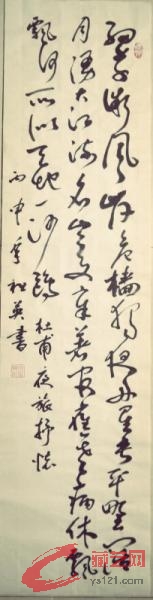 细草微风岸危樯独夜舟星垂平野阔
月涌大江流名岂文章著官应老病休飘
飘何所似天地一沙鸥 杜甫夜旅抒怀
丙申 英书
ys121.com